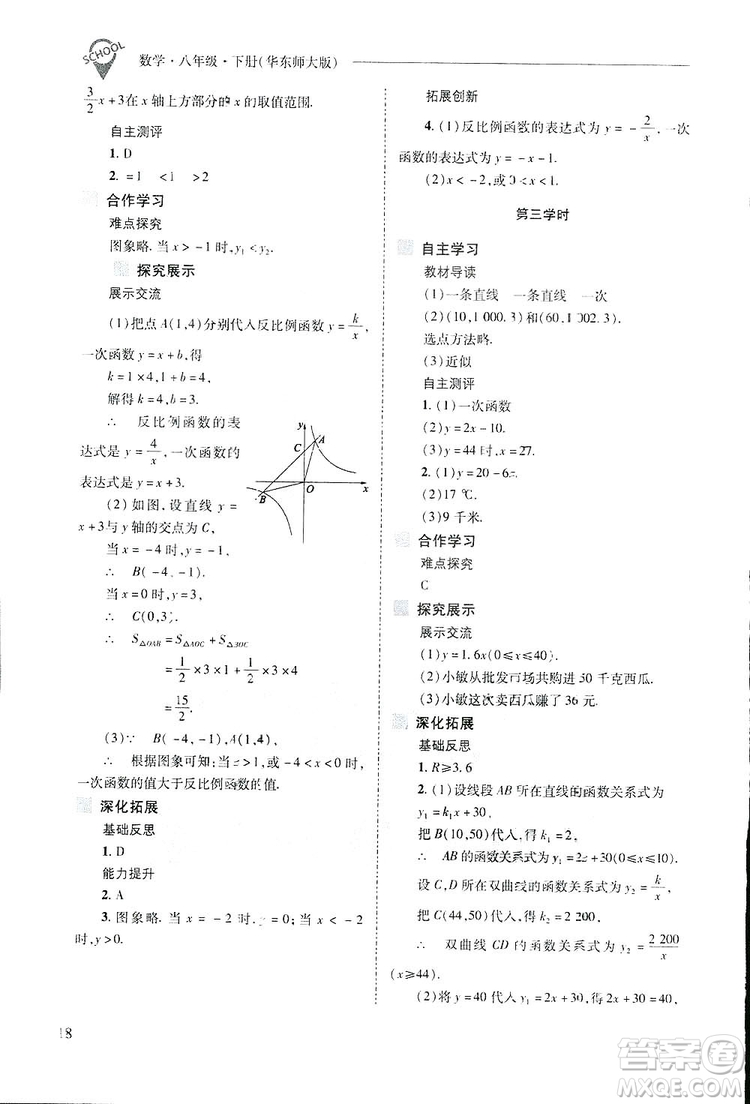 SCHOOL
数学·八年级·下册(华东师大版)
3/2 x+3在x轴上方部分的x的取值范围.
自主测评
1. D
2. =1 <1 >2
合作学习
难点探究
图象略. 当x>-1时,y₁<y₂.
探究展示
展示交流
(1)把点A(1,4)分别代入反比例函数y=k/x,
一次函数y=x+b,得
k=1×4,1+b=4,
解得k=4,b=3.
∴ 反比例函数的表
达式是y=4/x,一次函数的
表达式是y=x+3.
(2)如图,设直线y=
x+3与y轴的交点为C,
当x=-4时,y=-1,
∴ B(-4,-1).
当x=0时,y=3,
∴ C(0,3).
∴ S△OAB=S△AOC+S△BOC
=1/2×3×1+1/2×3×4
=15/2.
(3)∵ B(-4,-1),A(1,4),
∴ 根据图象可知:当x>1或-4<x<0时,
一次函数的值大于反比例函数的值.
y
A
C
B
O
x
深化拓展
基础反思
1. D
能力提升
2. A
3. 图象略. 当x=-2时,y=0;当x<-2
时,y>0.
18
拓展创新
4. (1)反比例函数的表达式为y=-2/x,一次
函数的表达式为y=-x-1.
(2)x<-2,或0<x<1.
第三学时
自主学习
教材导读
(1)一条直线 一条直线 一次
(2)(10,1 000.3)和(60,1 002.3)
选点方法略.
(3)近似
自主测评
1. (1)一次函数
(2)y=2x-10.
(3)y=44时,x=27.
2. (1)y=20-6x.
(2)17 ℃.
(3)9 千米.
合作学习
难点探究
C
探究展示
展示交流
(1)y=1.6x(0≤x≤40).
(2)小敏从批发市场共购进50千克西瓜.
(3)小敏这次卖西瓜赚了36元.
深化拓展
基础反思
1. R≥3.6
2. (1)设线段AB所在直线的函数关系式为
y₁=k₁x+30,
把B(10,50)代入,得k₁=2,
∴ AB的函数关系式为y₁=2x+30(0≤x≤10).
设C,D所在双曲线的函数关系式为y₂=k/x,
把C(44,50)代入,得k=2 200,
∴ 双曲线CD的函数关系式为y₂=2 200/x
(x≥44).
(2)将y=40代入y₁=2x+30,得2x+30=40,
答案圈
MXQE.COM